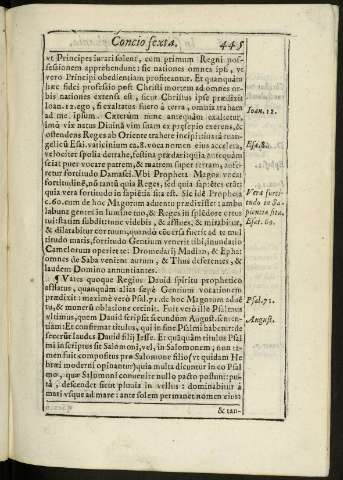 Concio sexta. 445
vt Principes iurari solent, cum primum Regni pos-
sessionem apprehendunt: sic nationes omnes ipsi, vt
vero Principi obedientiam profiterentur. Et quanquàm
hæc fidei professio post Christi mortem ad omnes or-
bis nationes extensa est, sicut Christus ipse prædixit
Ioan. 12. ego, si exaltatus fuero à terra, omnia traham
ad me ipsum. Cæterùm nunc antequàm exaltetur,
imò vix natus Diuinā vim suam ex præsepio exerens, &
ostendens Reges ab Oriente trahere incipit iuxta
geli cū Esai. vaticinium ca. 8. voca nomen eius accelera,
velociter spolia detrahe, festina prædari: quia antequàm
sciat puer vocare patrem, & matrem super terram, aufe-
retur fortitudo Damasci. Vbi Propheta Magos vocat
fortitudinē, nō tantū quia Reges, sed quia sapiētes erāt:
quia vera fortitudo in sapiētia sita est. Sic idē Propheta
c. 60. cum de hoc Magorum aduentu prædixisset: ambu
labunt gentes in lumine tuo, & Reges in splēdore ortus
tui: statim subdit: tunc videbis, & afflues, & mirabitur,
& dilatabitur cor tuum, quando cōuersa fuerit ad te mul
titudo maris, fortitudo Gentium venerit tibi, inundatio
Camelorum operiet te: Dromedarij Madian, & Ephat
omnes de Saba venient aurum, & Thus deferentes, &
laudem Domino annuntiantes.
¶ Vates quoque Regius Dauid spiritu prophetico
afflatus, quanquàm alias sæpè Gentium vocationem
prædixit: maximè verò Psal. 71. de hoc Magorum aduē
tu, & munerū oblatione cecinit. Fuit verò ille Psalmus
vltimus, quem Dauid scripsit secundùm August. senten-
tiam: Et confirmat titulus, qui in fine Psalmi habetur: de
fecerūt laudes Dauid filij Iesse. Et quāquàm titulus Psal
mi inscriptus sit Salomoni, vel, in Salomonem, non ta-
men fuit compositus pro Salomone filio (vt quidam He
bræi moderni opinantur) quia multa dicuntur in eo Psal
mo, quæ Salomoni conuenire nullo pacto possunt: pu-
tà, descendet sicut pluuia in vellus: dominabitur à
mari vsque ad mare: ante solem permanet nomen eius:
& tan-
Ioan. 12.
Esa. 8.
Vera forti
tudo in Sa-
pientia sita.
Esai. 60.
Psal. 71.
August.